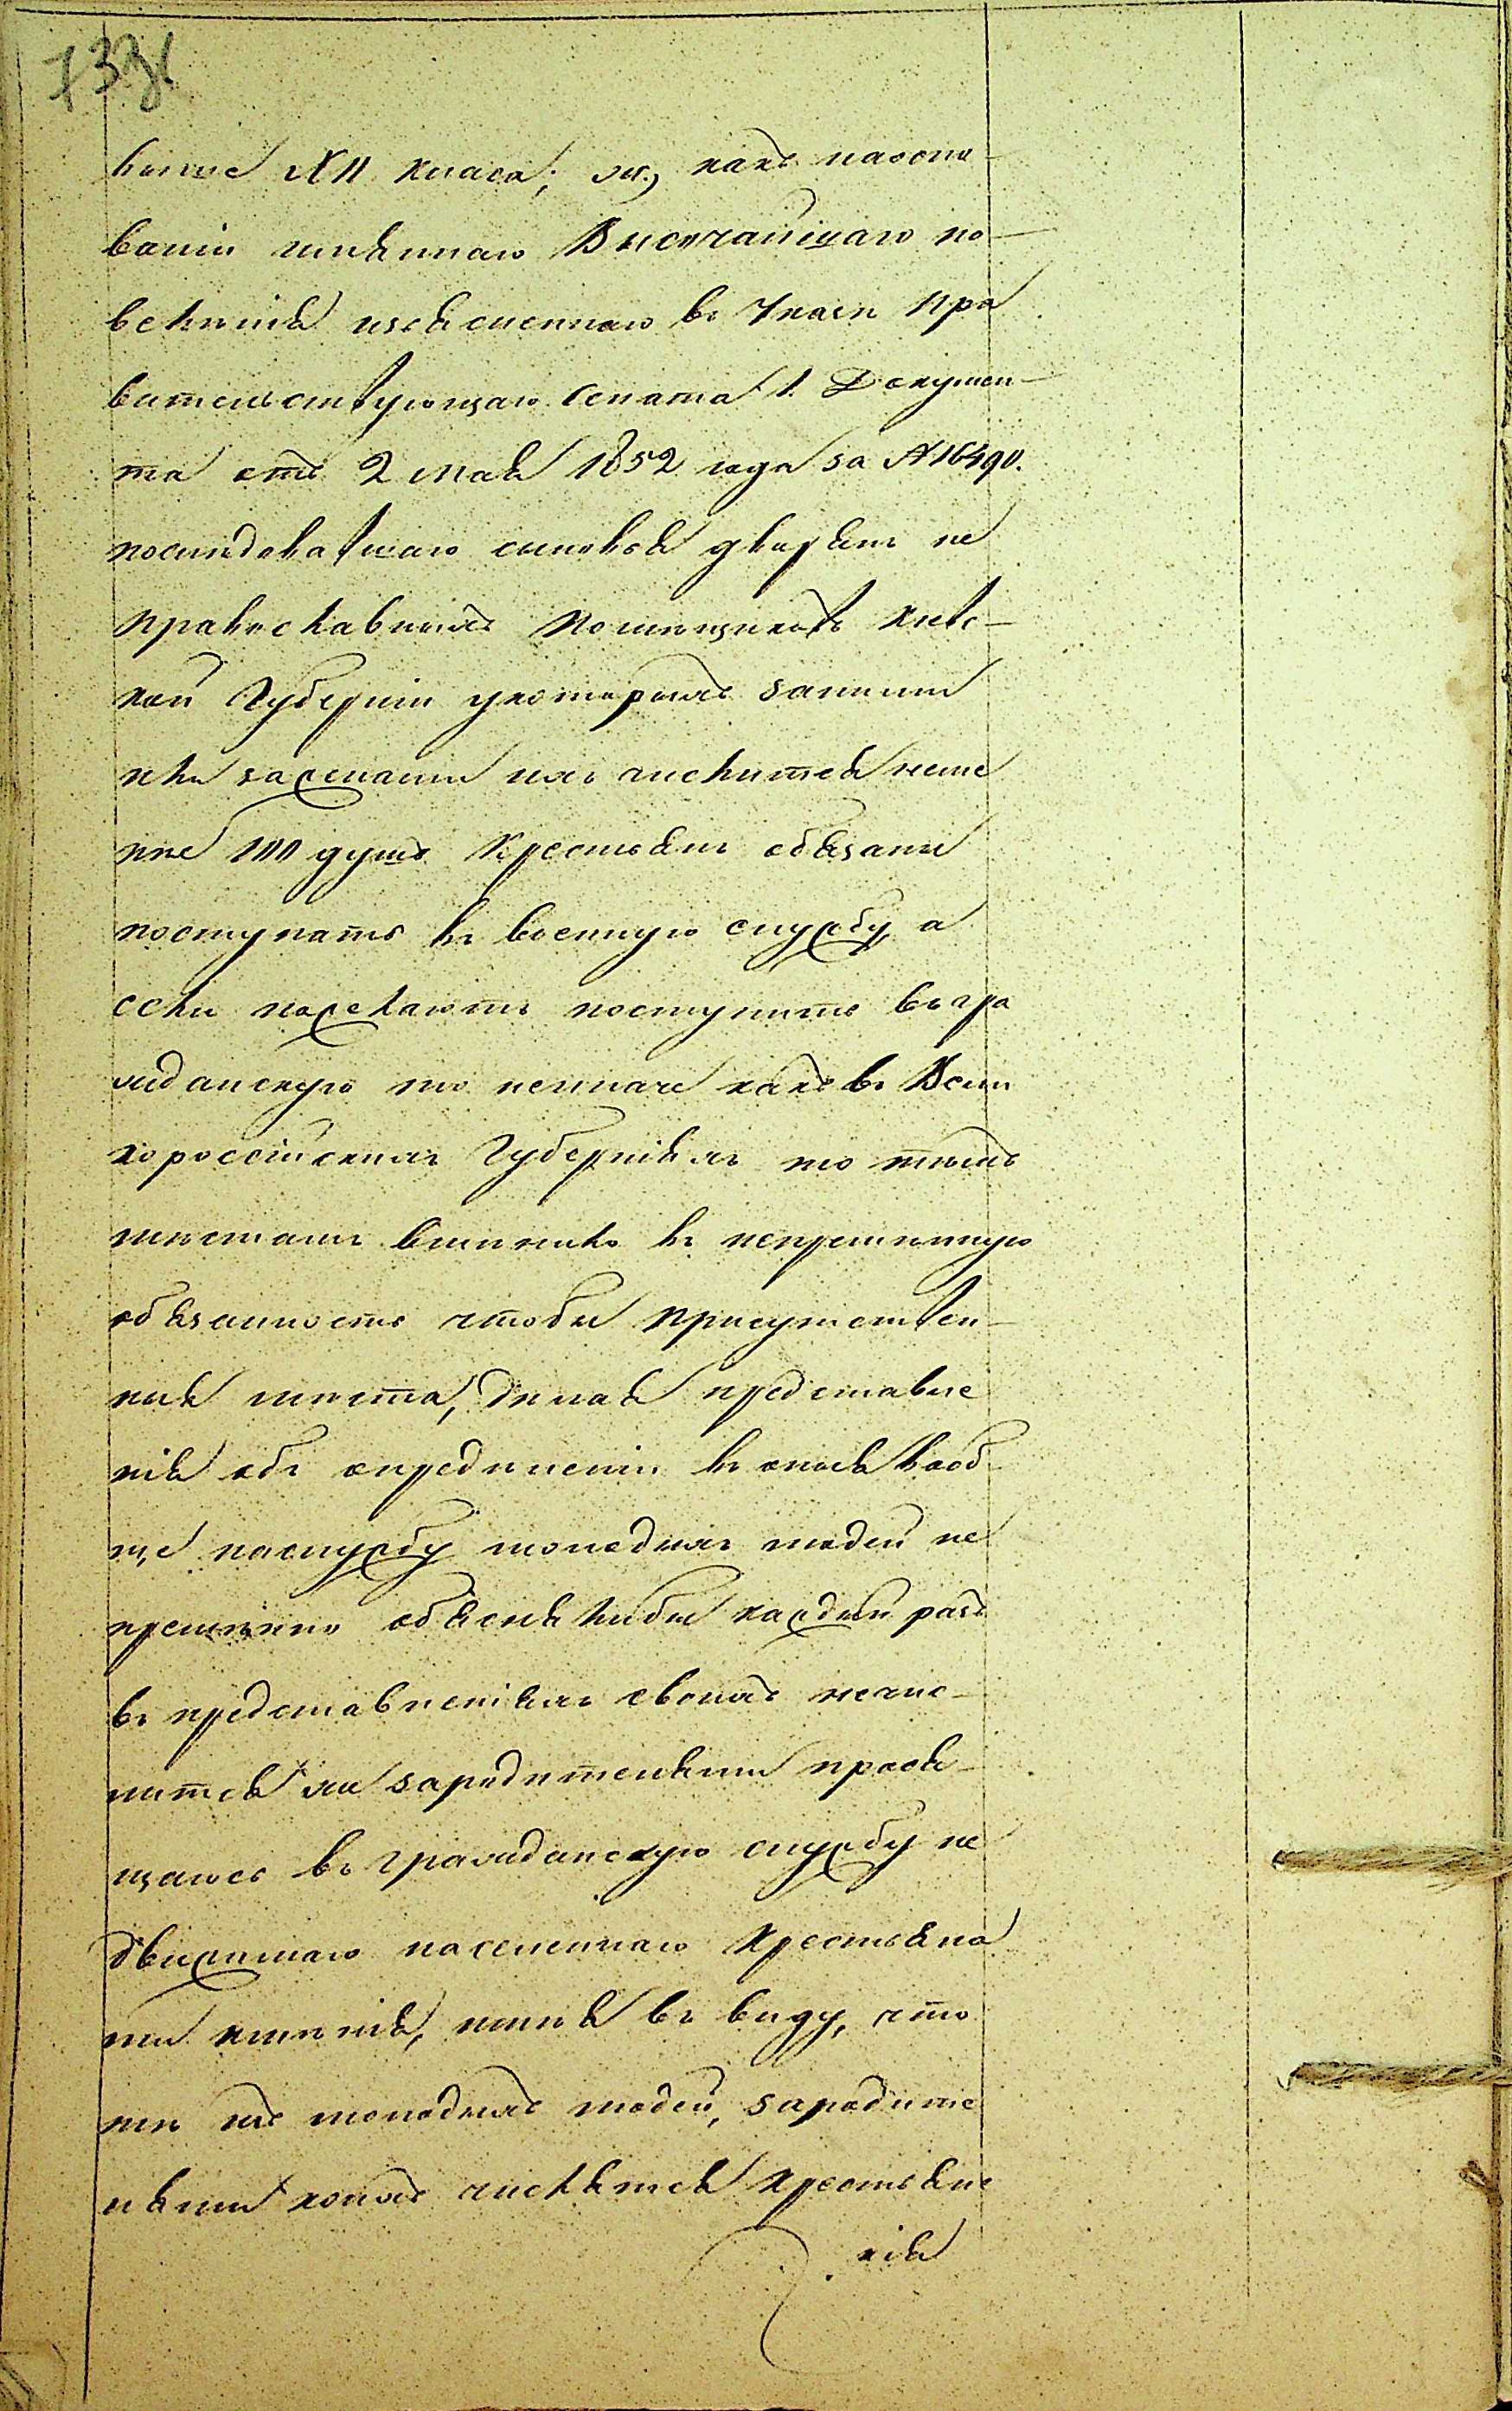 733б
выше XII класа; ж., какъ наосно-
ваніи имяннаго Высочайшаго по-
веленія изъясненнаго въ Указѣ Пра
вительствующаго Сената 1. Департамен-
та отъ 2 мая 1852 года за № 16490.
последовавшаго сыновья дворянъ не
православныхъ помѣщиковъ Кіевс-
кой Губерніи укоторыхъ заними
или заженами ихъ числится неме
нѣе 100 душъ Крестьянъ обязаны
поступать въ военную службу, а
если пожелаютъ поступить въ гра
жданскую то неиначе какъ въ Вели
короссійскихъ Губерніяхъ, то тѣмъ
мѣстамъ вмѣнило въ непремѣнную
обязанность чтобы присутствен-
ныя мѣста, дѣлая представле
нія объ опредѣленіи въ оныя вооб-
ще наслужбу молодыхъ людей не
премѣнно объясняли бы каждый разъ
въ представленіяхъ своихъ нечис-
лится ли зародителями прося-
щагось въ гражданскую службу не
движимаго населеннаго Крестьяна
ми имѣнія, имѣя въ виду, что
тѣ изъ молодыхъ людей, зародите
лями коихъ числятся Крестьяне
нія